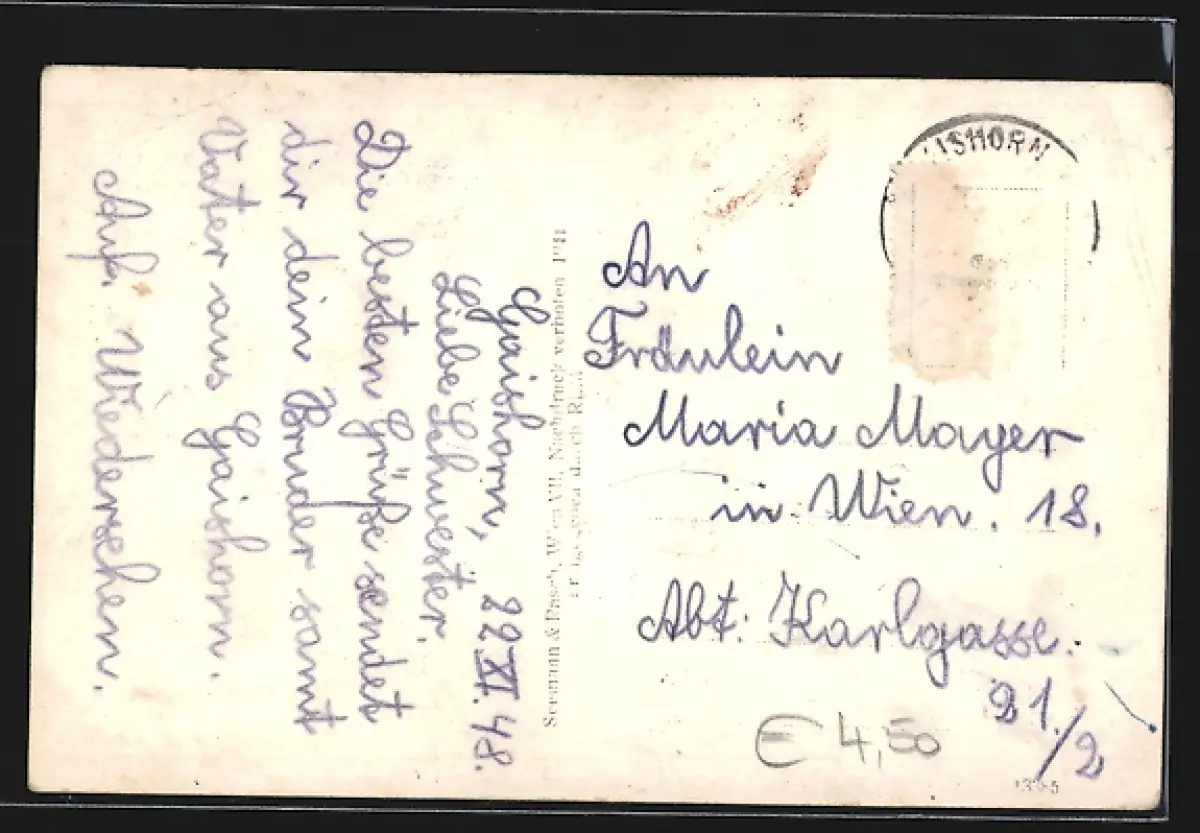 Gaishorn, 22 XI. 48.
Liebe Schwester!
Die besten Grüße sendet
dir dein Bruder samt
Vater aus Gaishorn.
Auf. Wiedersehen.
Wien VII, Nachdruck verboten
ISHORN
An
Fräulein
Maria Mayer
in Wien. 18.
Abt: Karlgasse.
21./2
€ 4,50